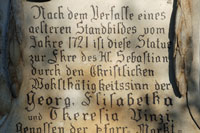 Nach dem Verfalle eines
aelteren Standbildes vom
Jahre 1721 ist diese Statue
zur Ehre des Hl. Sebastian
durch den Christlichen
Wohlthätigkeitssinn der
Georg, Elisabetha
und Theresia Vinzi,
Genossen der Pfarr Markt